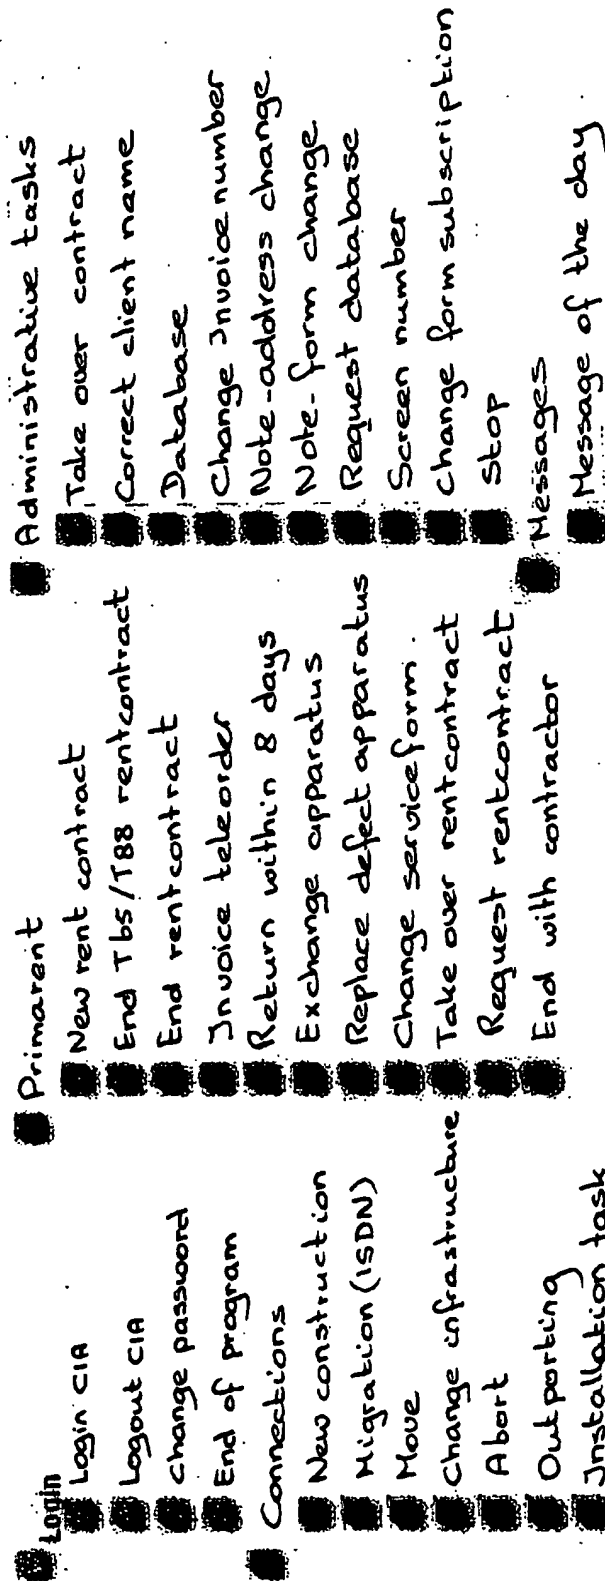 Login
Login CIA
Logout CIA
change password
End of program
Connections
New construction
Migration (ISDN)
Move
Change infrastructure
Abort
Outporting
Installation task
Primarent
New rent contract
End Tbs/T88 rentcontract
End rentcontract
Invoice teleorder
Return within 8 days
Exchange apparatus
Replace defect apparatus
Change serviceform.
Take over rentcontract
Request rentcontract
End with contractor
Administrative tasks
Take over contract
Correct client name
Database
Change Invoice number
Note-address change
Note-form change
Request database
Screen number
change form subscription
Stop
Messages
Message of the day